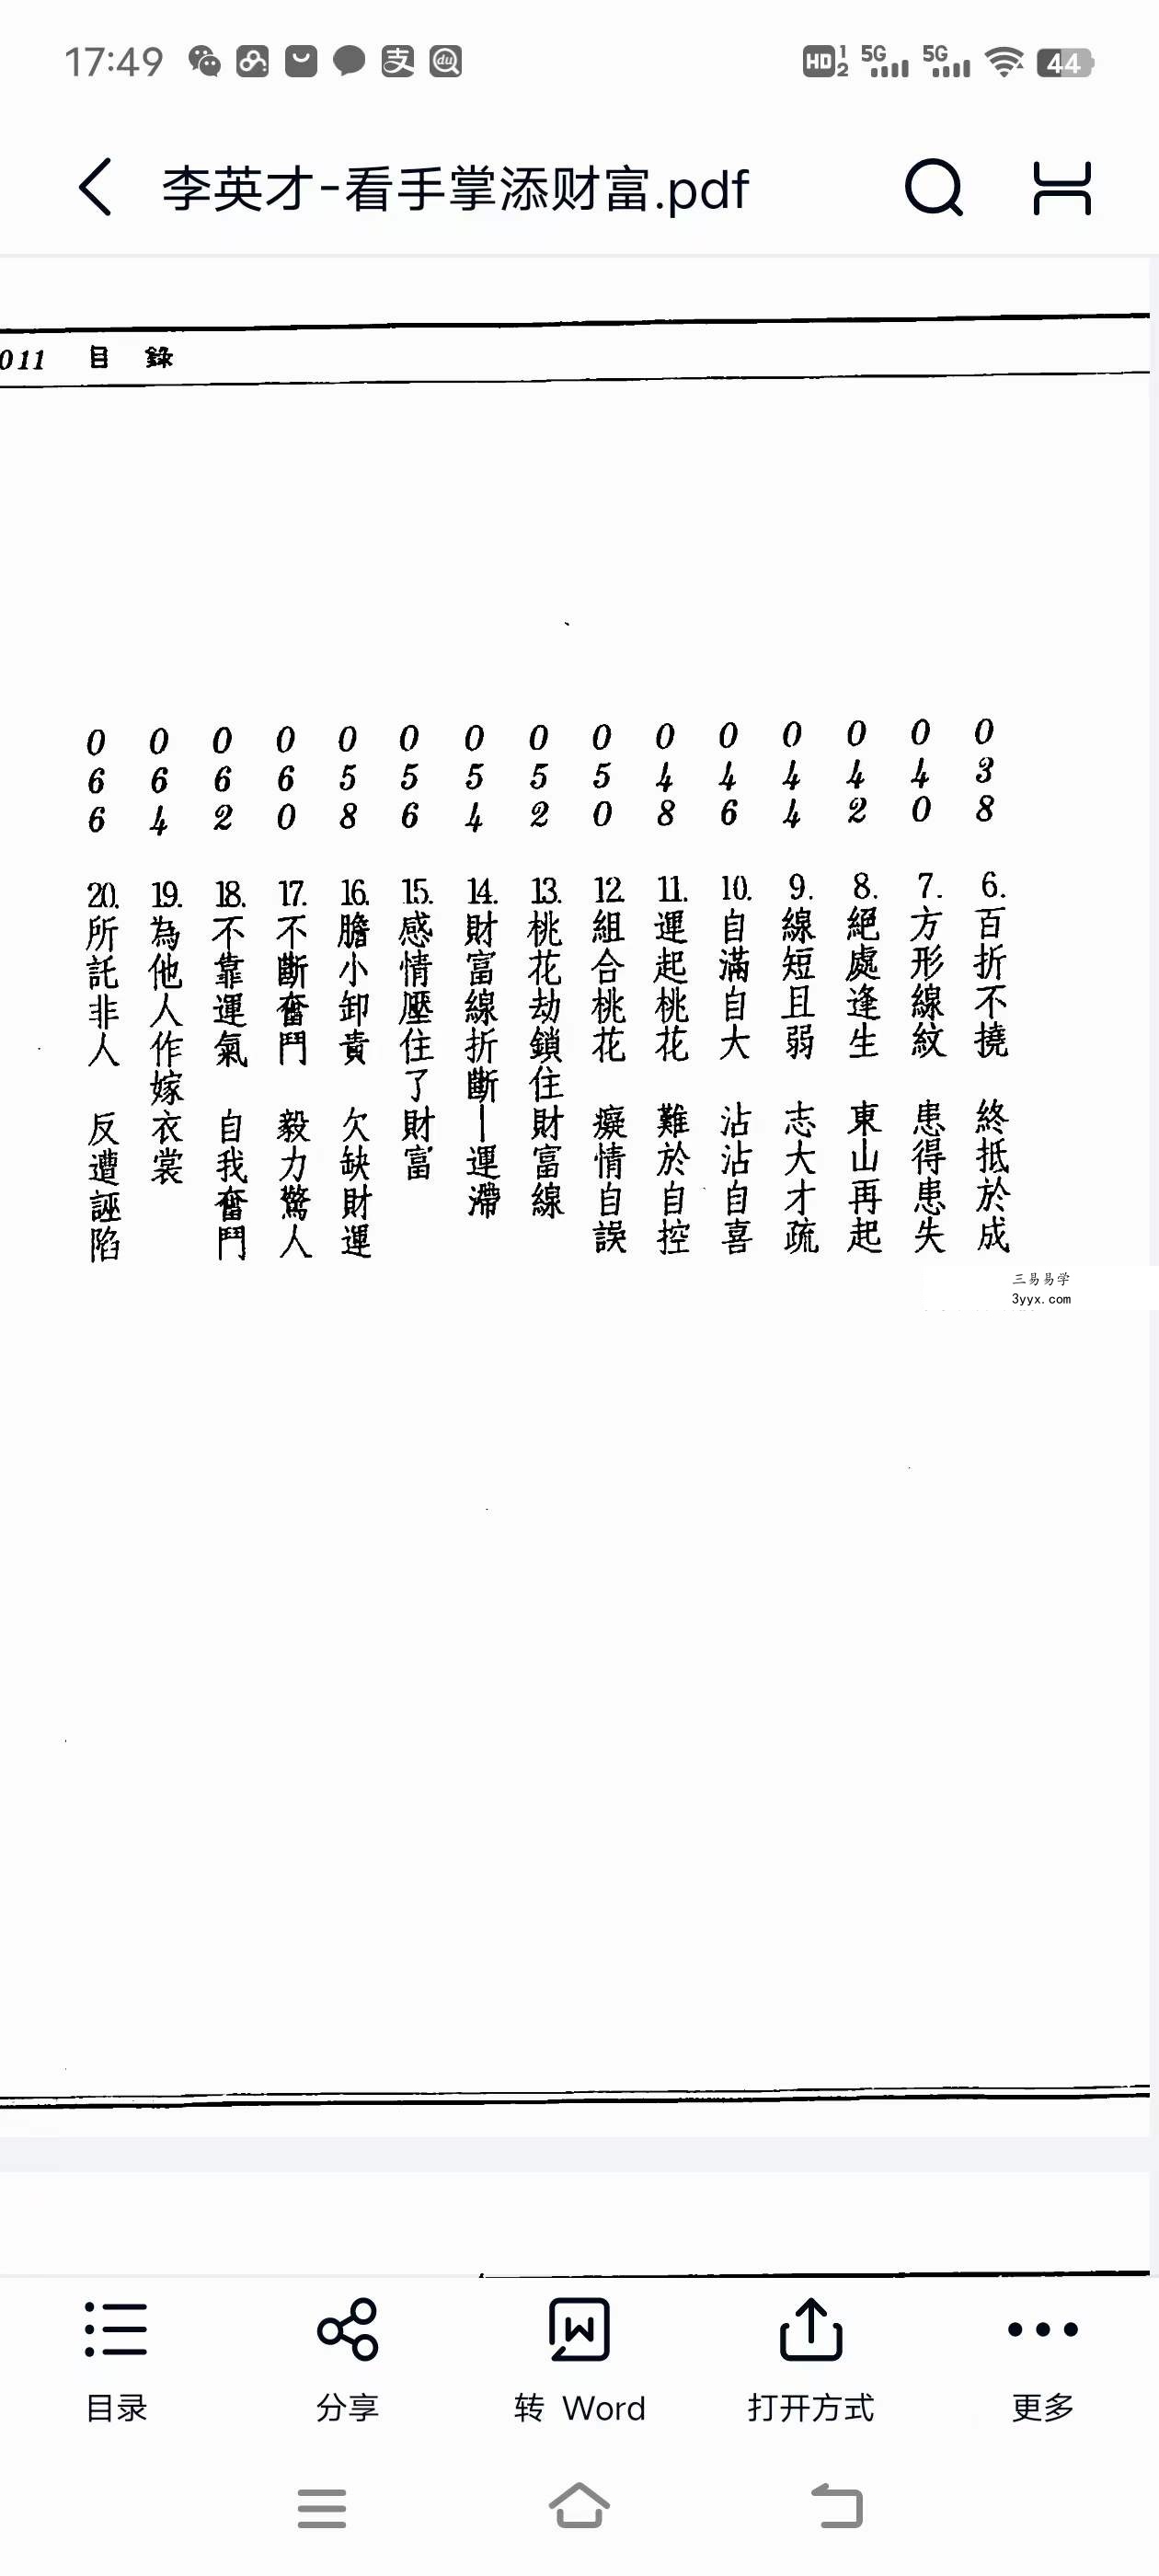 17:49
HD 1 2 5G 5G 44
李英才-看手掌添财富.pdf
011 目錄
038 6.百折不撓 終抵於成
040 7.方形線紋 患得患失
042 8.絕處逢生 東山再起
044 9.線短且弱 志大才疏
046 10.自滿自大 沾沾自喜
048 11.運起桃花 難於自控
050 12.組合桃花 癡情自誤
052 13.桃花劫鎖住財富線
054 14.財富線折斷—運滯
056 15.感情壓住了財富
058 16.膽小卸責 欠缺財運
060 17.不斷奮鬥 毅力驚人
062 18.不靠運氣 自我奮鬥
064 19.為他人作嫁衣裳
066 20.所託非人 反遭誣陷
三易易学
3yyx.com
目录
分享
转 Word
打开方式
更多